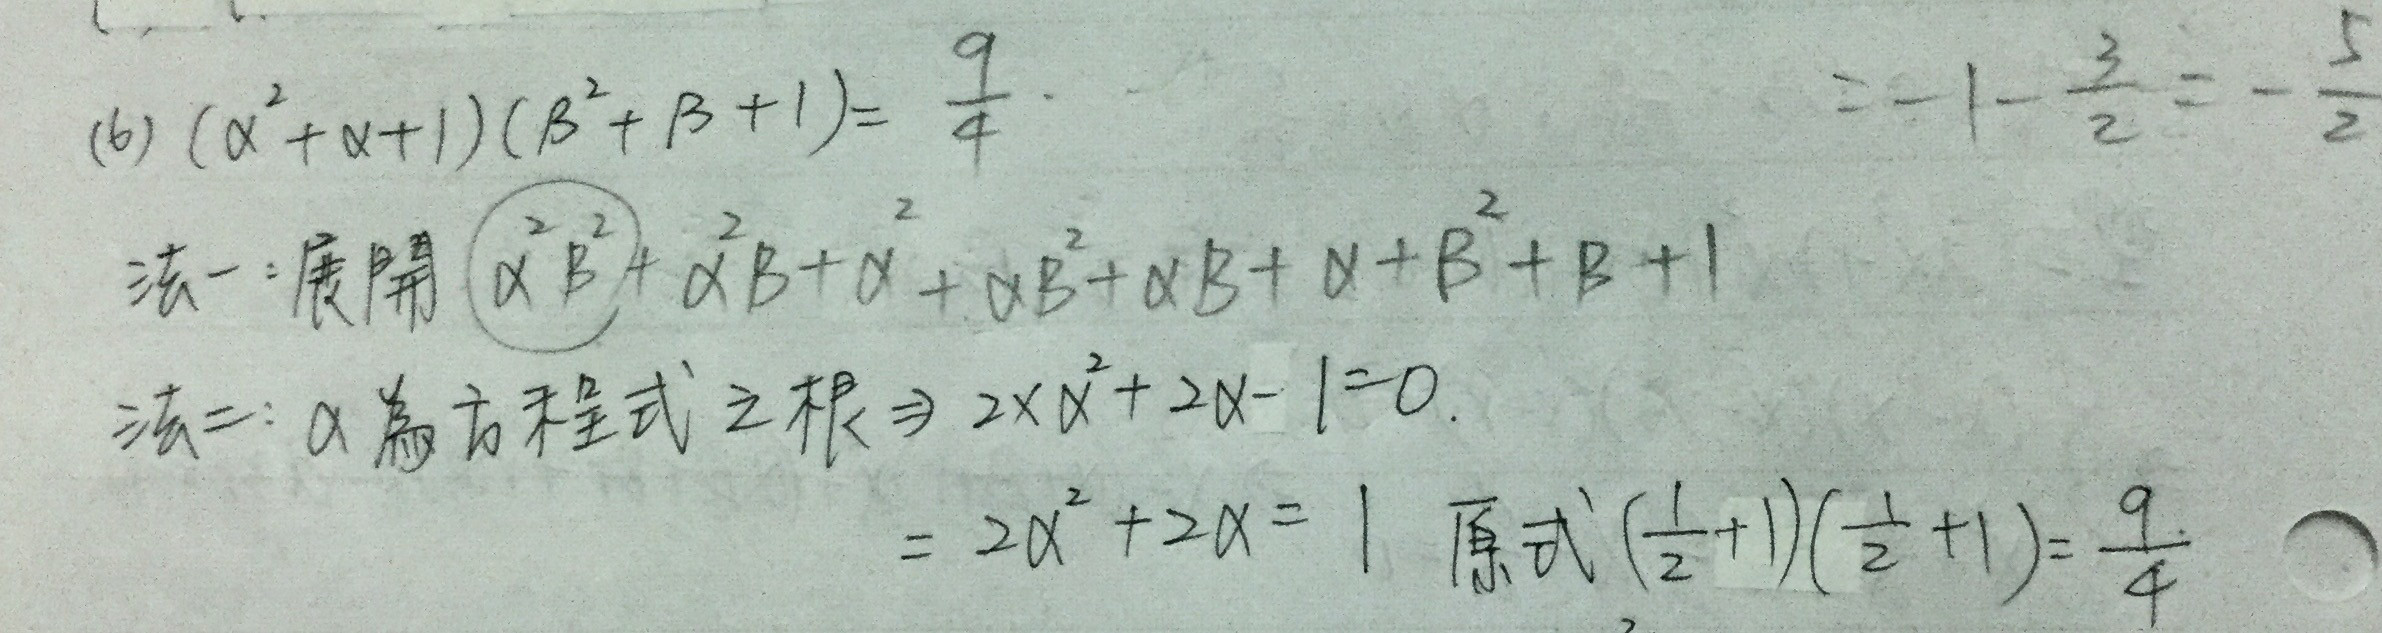 = -1 - 3/2 = - 5/2
(6) (α²+α+1)(β²+β+1)= 9/4.
法一:展開 α²β²+α²β+α²+αβ²+αβ+α+β²+β+1
法二:α為方程式之根⇒2×α²+2α-1=0.
= 2α²+2α=1 原式(1/2+1)(1/2+1)=9/4